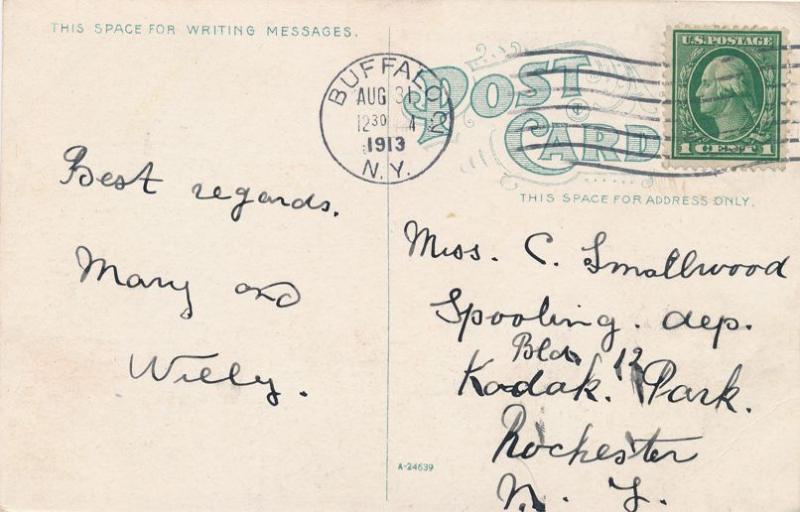 THIS SPACE FOR WRITING MESSAGES.
BUFFALO
AUG 31
12 30 A
2
1913
N.Y.
POST
CARD
U.S. POSTAGE
1 CENT 1
THIS SPACE FOR ADDRESS ONLY.
Best regards.
Mary and
Willy.
Miss. C. Smallwood
Spooling. dep.
Bld. 12
Kodak. Park.
Rochester
N. Y.
A-24639